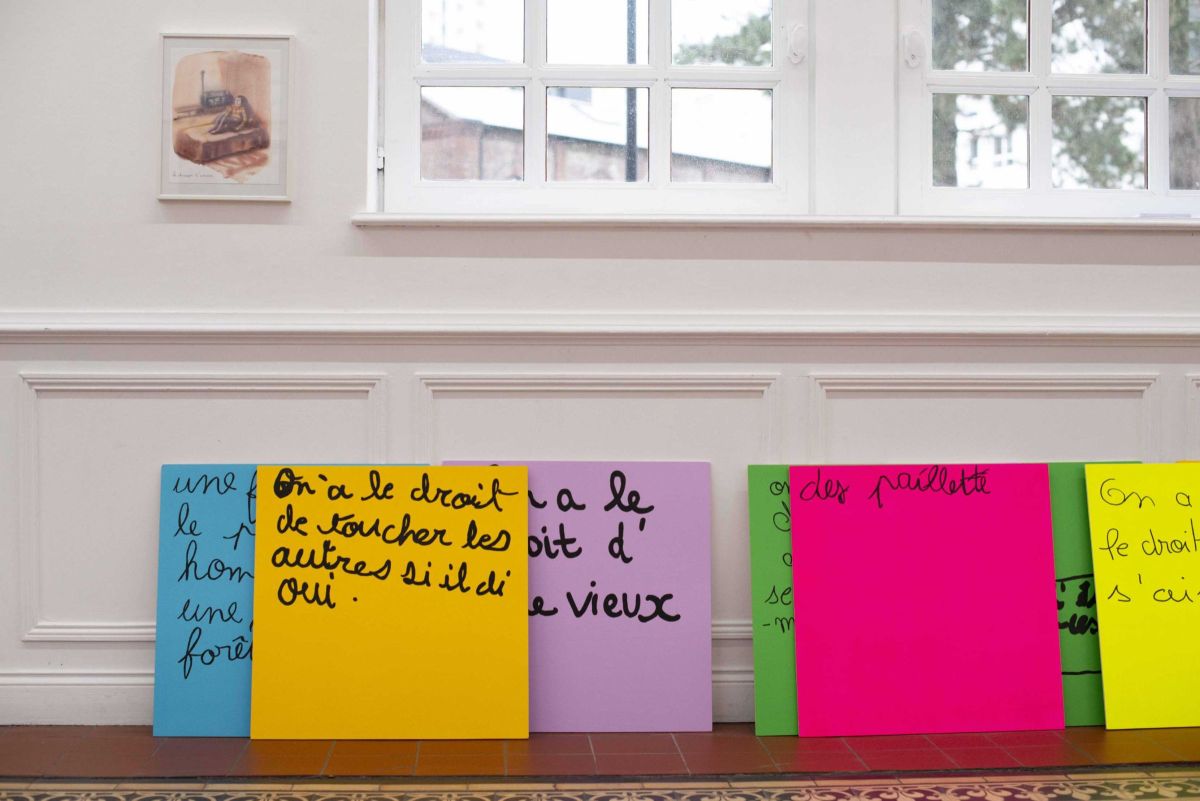 une
le
hom
une
forê
On a le droit
de toucher les
autres si il di
oui.
a le
oit d'
e vieux
on
se
-m
des paillette
On a
le droit